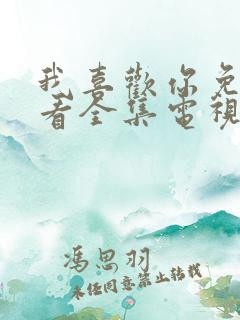 我喜歡你免
看全集電視
馮思羽
未經同意禁止轉載